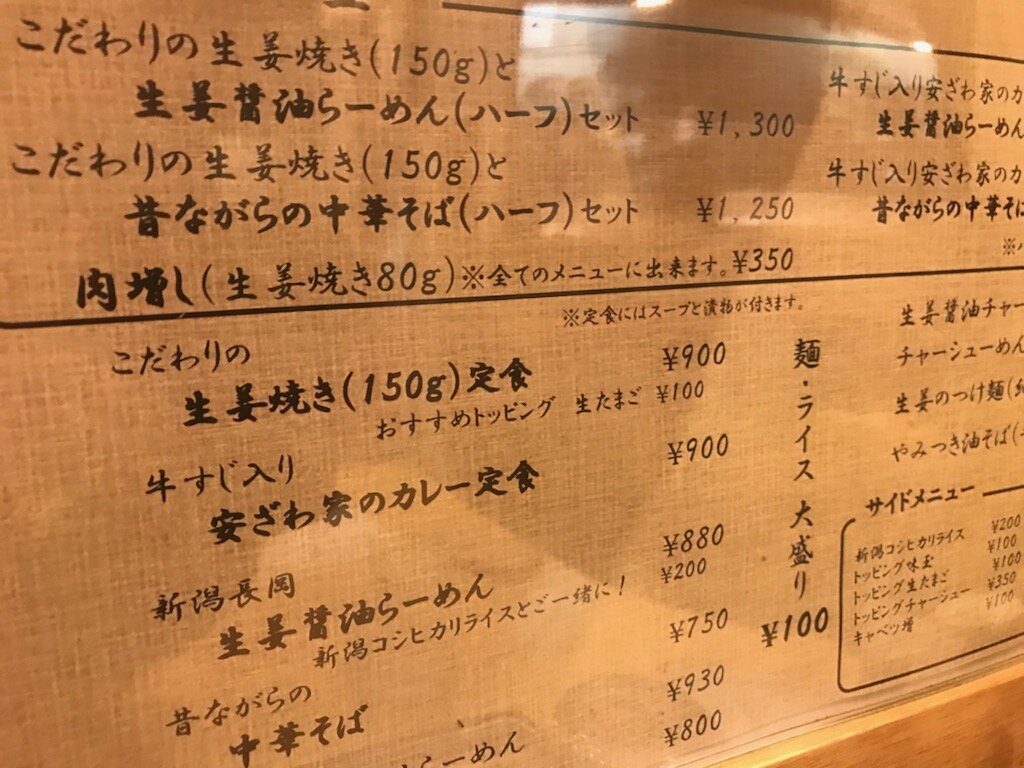 こだわりの生姜焼き(150g)と
生姜醤油らーめん(ハーフ)セット ¥1,300
こだわりの生姜焼き(150g)と
昔ながらの中華そば(ハーフ)セット ¥1,250
肉増し(生姜焼き80g)※全てのメニューに出来ます。¥350
牛すじ入り安ざわ家のカ
生姜醤油らーめん
牛すじ入り安ざわ家のカ
昔ながらの中華そば
※定食にはスープと漬物が付きます。
こだわりの
生姜焼き(150g)定食 ¥900
おすすめトッピング 生たまご ¥100
牛すじ入り
安ざわ家のカレー定食 ¥900
新潟長岡
生姜醤油らーめん ¥880
新潟コシヒカリライスとご一緒に! ¥200
昔ながらの
中華そば ¥750
¥930
らーめん ¥800
麺・ライス大盛り ¥100
生姜醤油チャー
チャーシューめん
生姜のつけ麺(
やみつき油そば(
サイドメニュー
新潟コシヒカリライス ¥200
トッピング味玉 ¥100
トッピング生たまご ¥100
トッピングチャーシュー ¥350
キャベツ増 ¥100